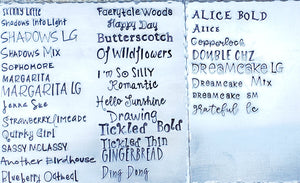 Shadows Into Light
SHADOWS LG
SHADOWS MIX
SOPHOMORE
MARGARITA
MARGARITA LG
Jenna Sue
Strawberry/limeade
Quirky Girl
SASSY MCLASSY
Another Birdhouse
Blueberry Oatmeal
Fairytale Woods
Happy Day
Butterscotch
Of Wildflowers
I'm So SILLY
Romantic
Hello Sunshine
Drawing
Tickled Bold
Tickled Thin
GINGERBREAD
Ding Dong
ALICE BOLD
Alice
Copperlock
DOUBLE CHZ
Dreamcake LG
Dreamcake Mix
Dreamcake SM
grateful lc